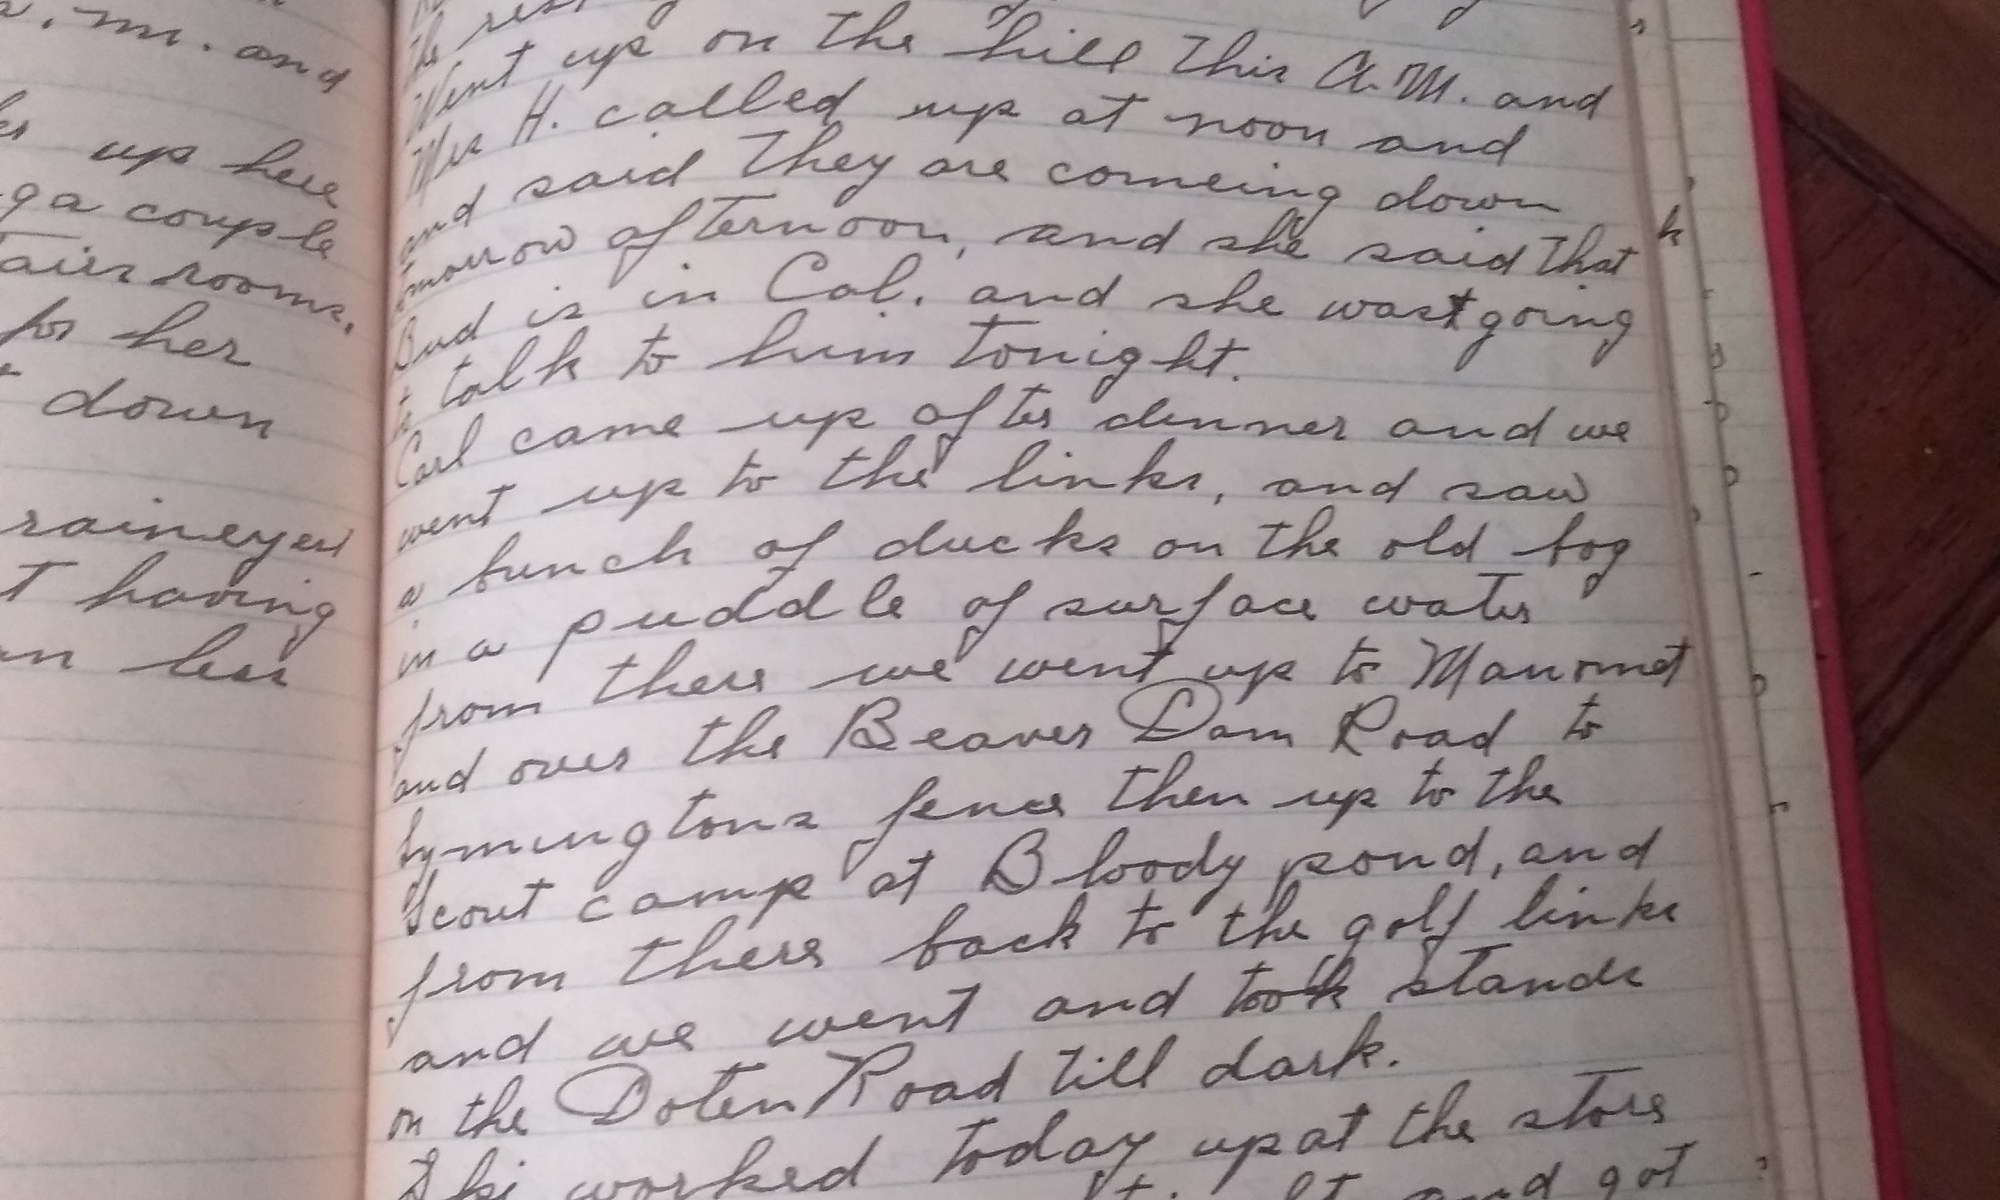 . m. and
up here
a couple
rooms.
for her
down
raineyed
having
less
the rest
Went up on the hill this A.M. and
Mrs H. called up at noon and
and said they are comeing down
tomorrow afternoon, and she said that
Bud is in Cal. and she was going
to talk to him tonight.
Carl came up after dinner and we
went up to the links, and saw
a bunch of ducks on the old bog
in a puddle of surface water
from there we went up to Manomet
and over the Beaver Dam Road to
Symingtons fence then up to the
Scout camp at Bloody pond, and
from there back to the golf links
and we went and took stands
on the Doten Road till dark.
Ski worked today up at the store
and got